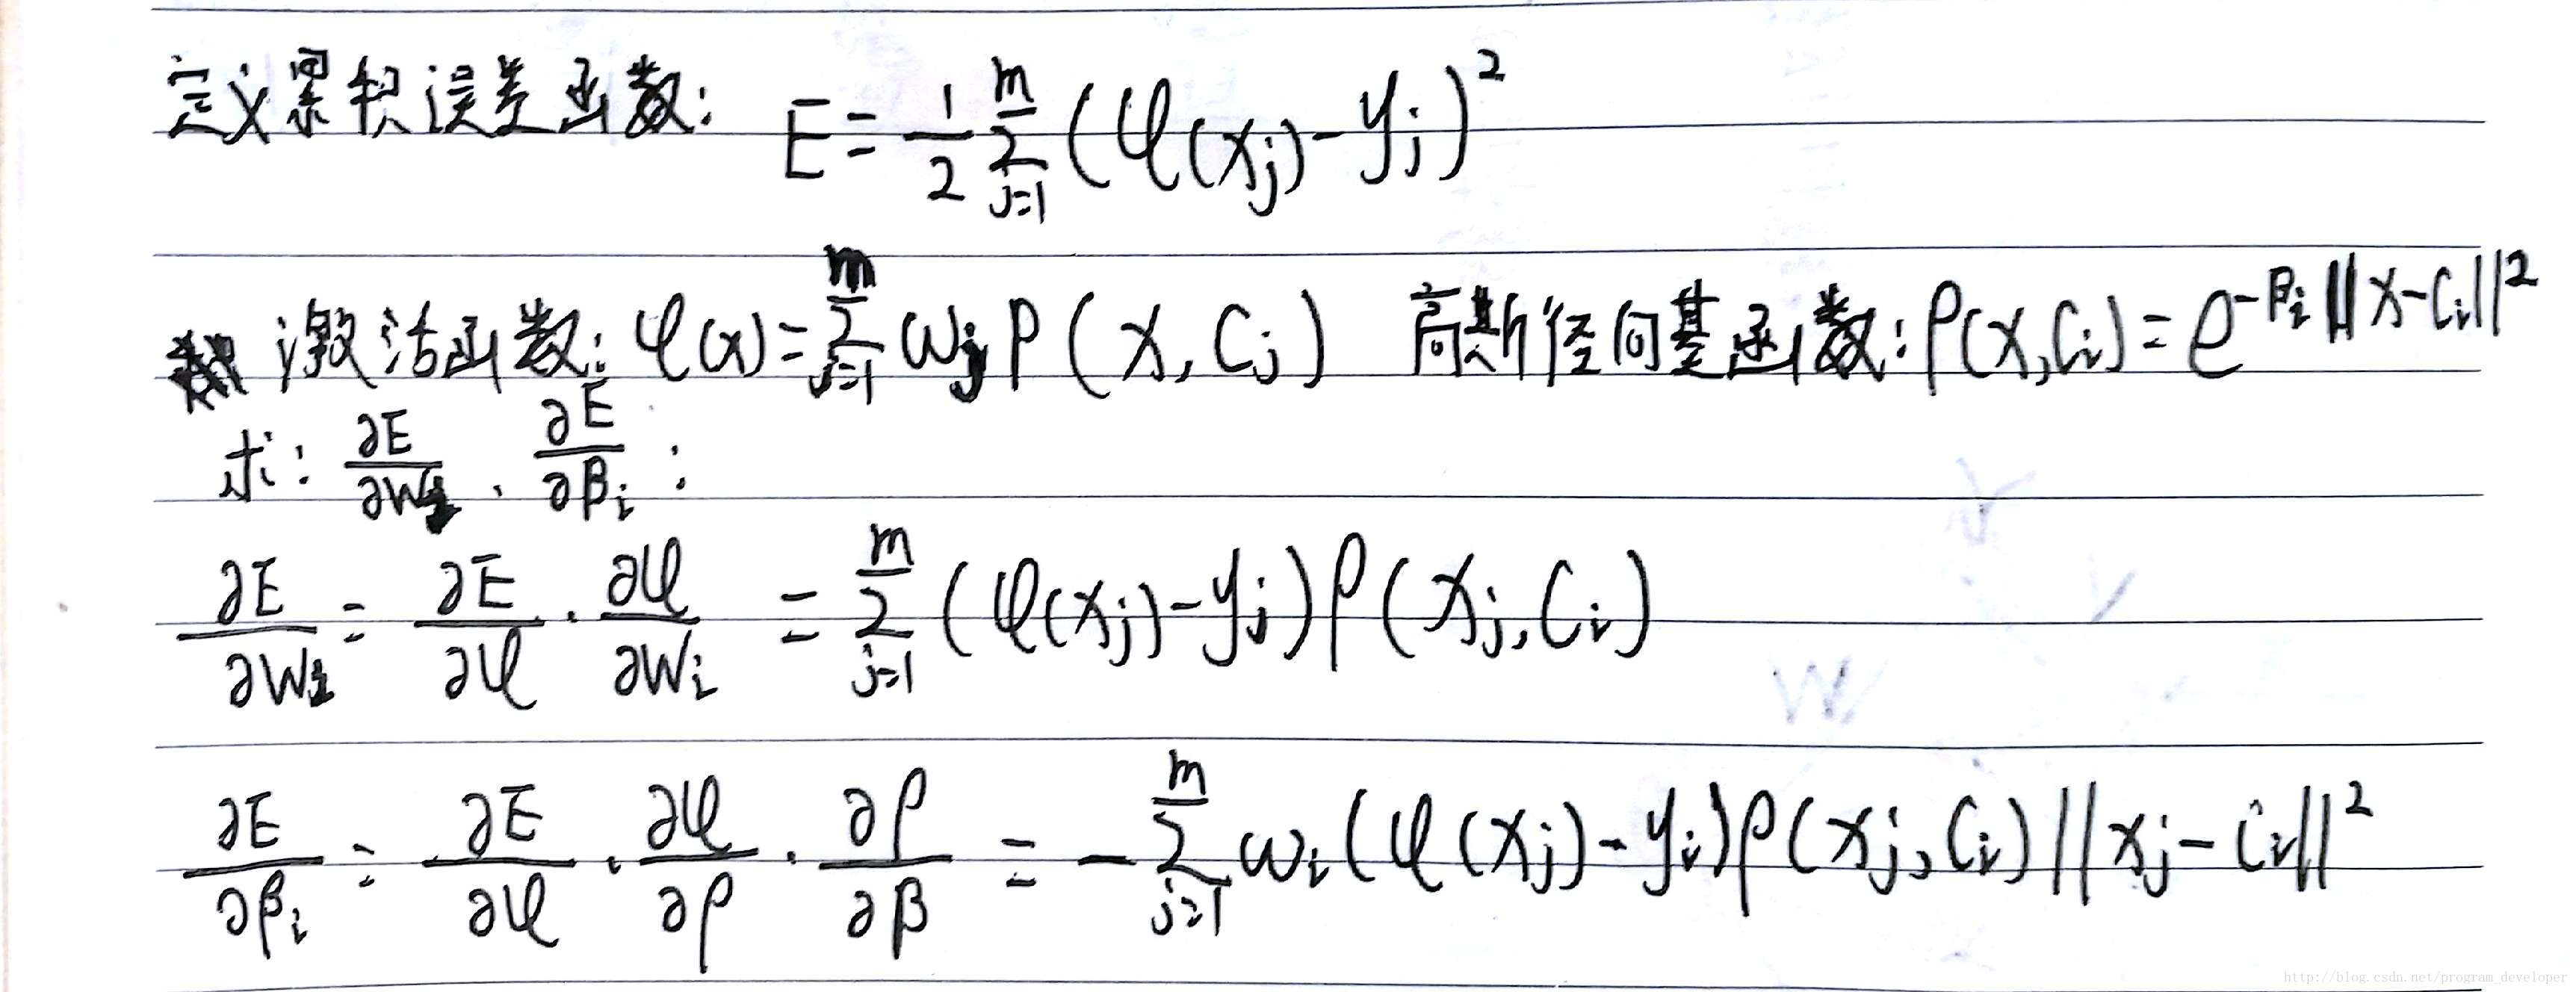 定义累积误差函数: E = 1/2 Σ_{j=1}^{m} (φ(x_j) - y_j)^2
激活函数: φ(x) = Σ_{j=1}^{m} ω_j ρ(x, c_j) 高斯径向基函数: ρ(x, c_i) = e^{-β_i ||x - c_i||^2}
求: ∂E/∂w_i 、 ∂E/∂β_i :
∂E/∂w_i = ∂E/∂φ · ∂φ/∂w_i = Σ_{j=1}^{m} (φ(x_j) - y_j) ρ(x_j, c_i)
∂E/∂β_i = ∂E/∂φ · ∂φ/∂ρ · ∂ρ/∂β = - Σ_{j=1}^{m} ω_i (φ(x_j) - y_i) ρ(x_j, c_i) ||x_j - c_i||^2
http://blog.csdn.net/program_developer